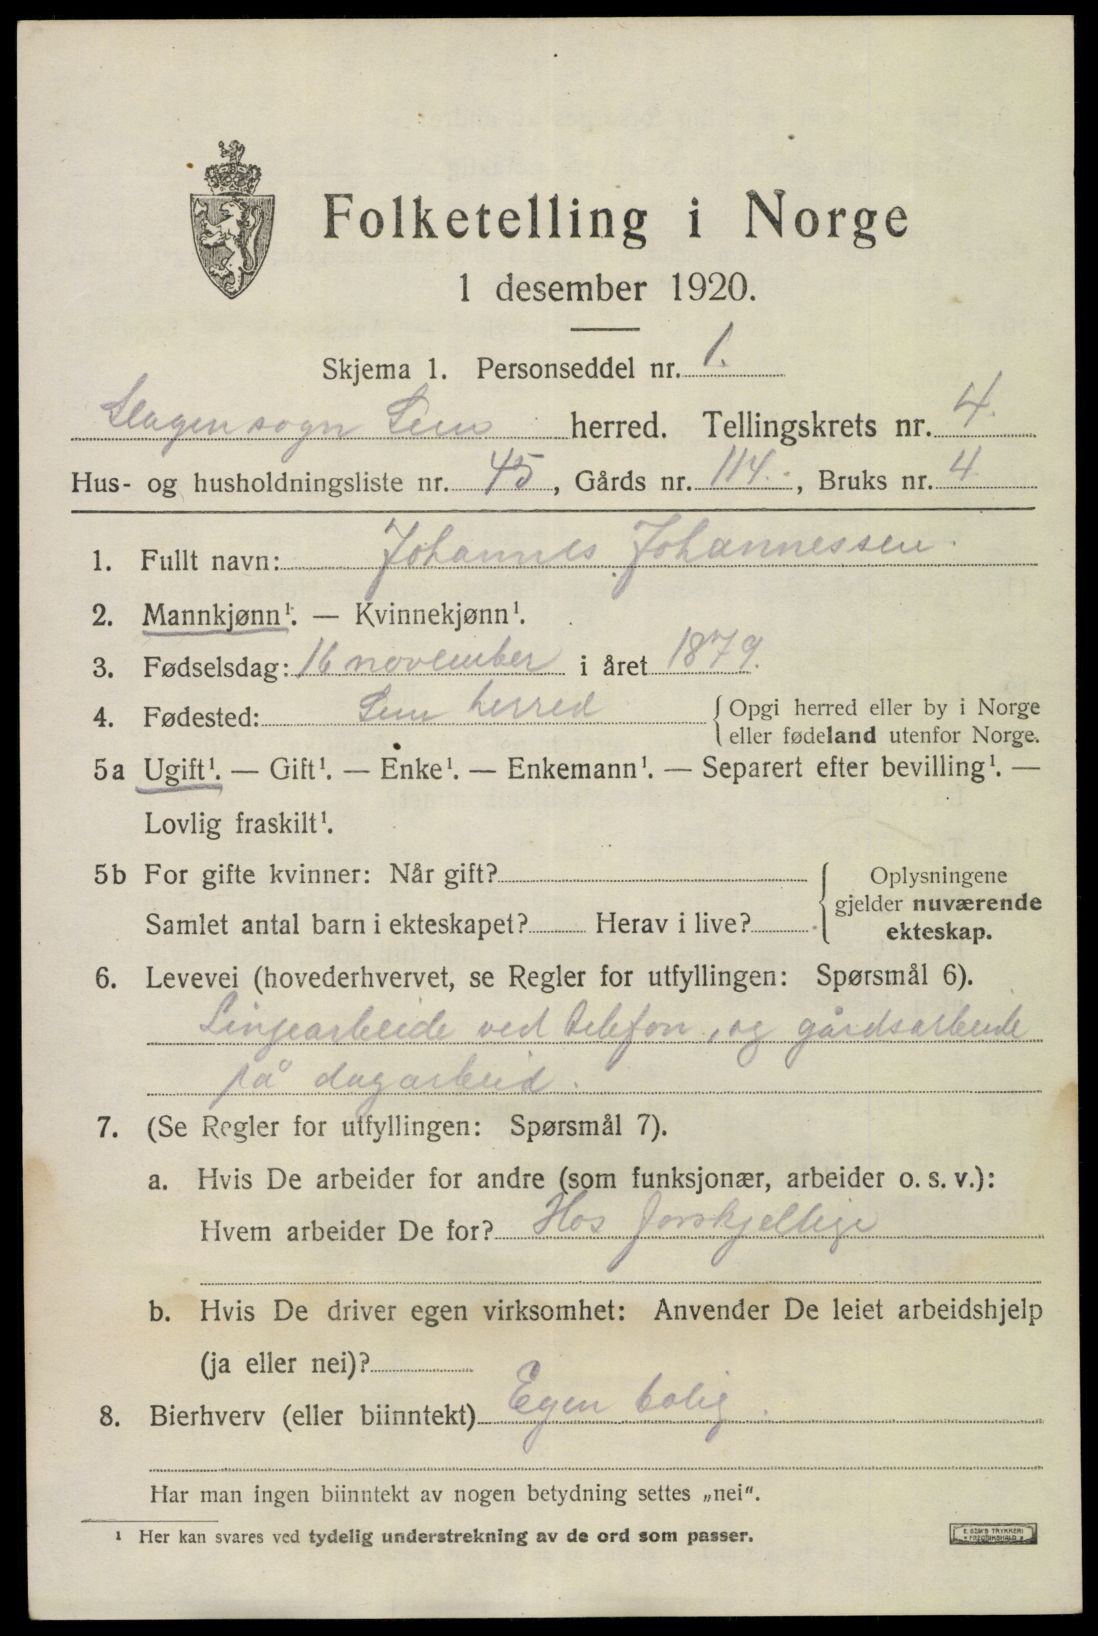 Folketelling i Norge
1 desember 1920.
Skjema 1. Personseddel nr. 1.
Slagen sogn Sem herred. Tellingskrets nr. 4.
Hus- og husholdningsliste nr. 45, Gårds nr. 114., Bruks nr. 4.
1. Fullt navn: Johannes Johannessen.
2. Mannkjønn¹. — Kvinnekjønn¹.
3. Fødselsdag: 16 november i året 1879.
4. Fødested: Sem herred { Opgi herred eller by i Norge
eller fødeland utenfor Norge.
5a Ugift¹. — Gift¹. — Enke¹. — Enkemann¹. — Separert efter bevilling¹. —
Lovlig fraskilt¹.
5b For gifte kvinner: Når gift?
Samlet antal barn i ekteskapet? Herav i live?
{ Oplysningene
gjelder nuværende
ekteskap.
6. Levevei (hovederhvervet, se Regler for utfyllingen: Spørsmål 6).
Linjearbeide ved telefon, og gårdsarbeide
på dagarbeid.
7. (Se Regler for utfyllingen: Spørsmål 7).
a. Hvis De arbeider for andre (som funksjonær, arbeider o. s. v.):
Hvem arbeider De for? Hos forskjellige
b. Hvis De driver egen virksomhet: Anvender De leiet arbeidshjelp
(ja eller nei)?
8. Bierhverv (eller biinntekt) Egen bolig.
Har man ingen biinntekt av nogen betydning settes „nei“.
¹ Her kan svares ved tydelig understrekning av de ord som passer.
E. SEM'S TRYKKERI
FREDRIKSHALD